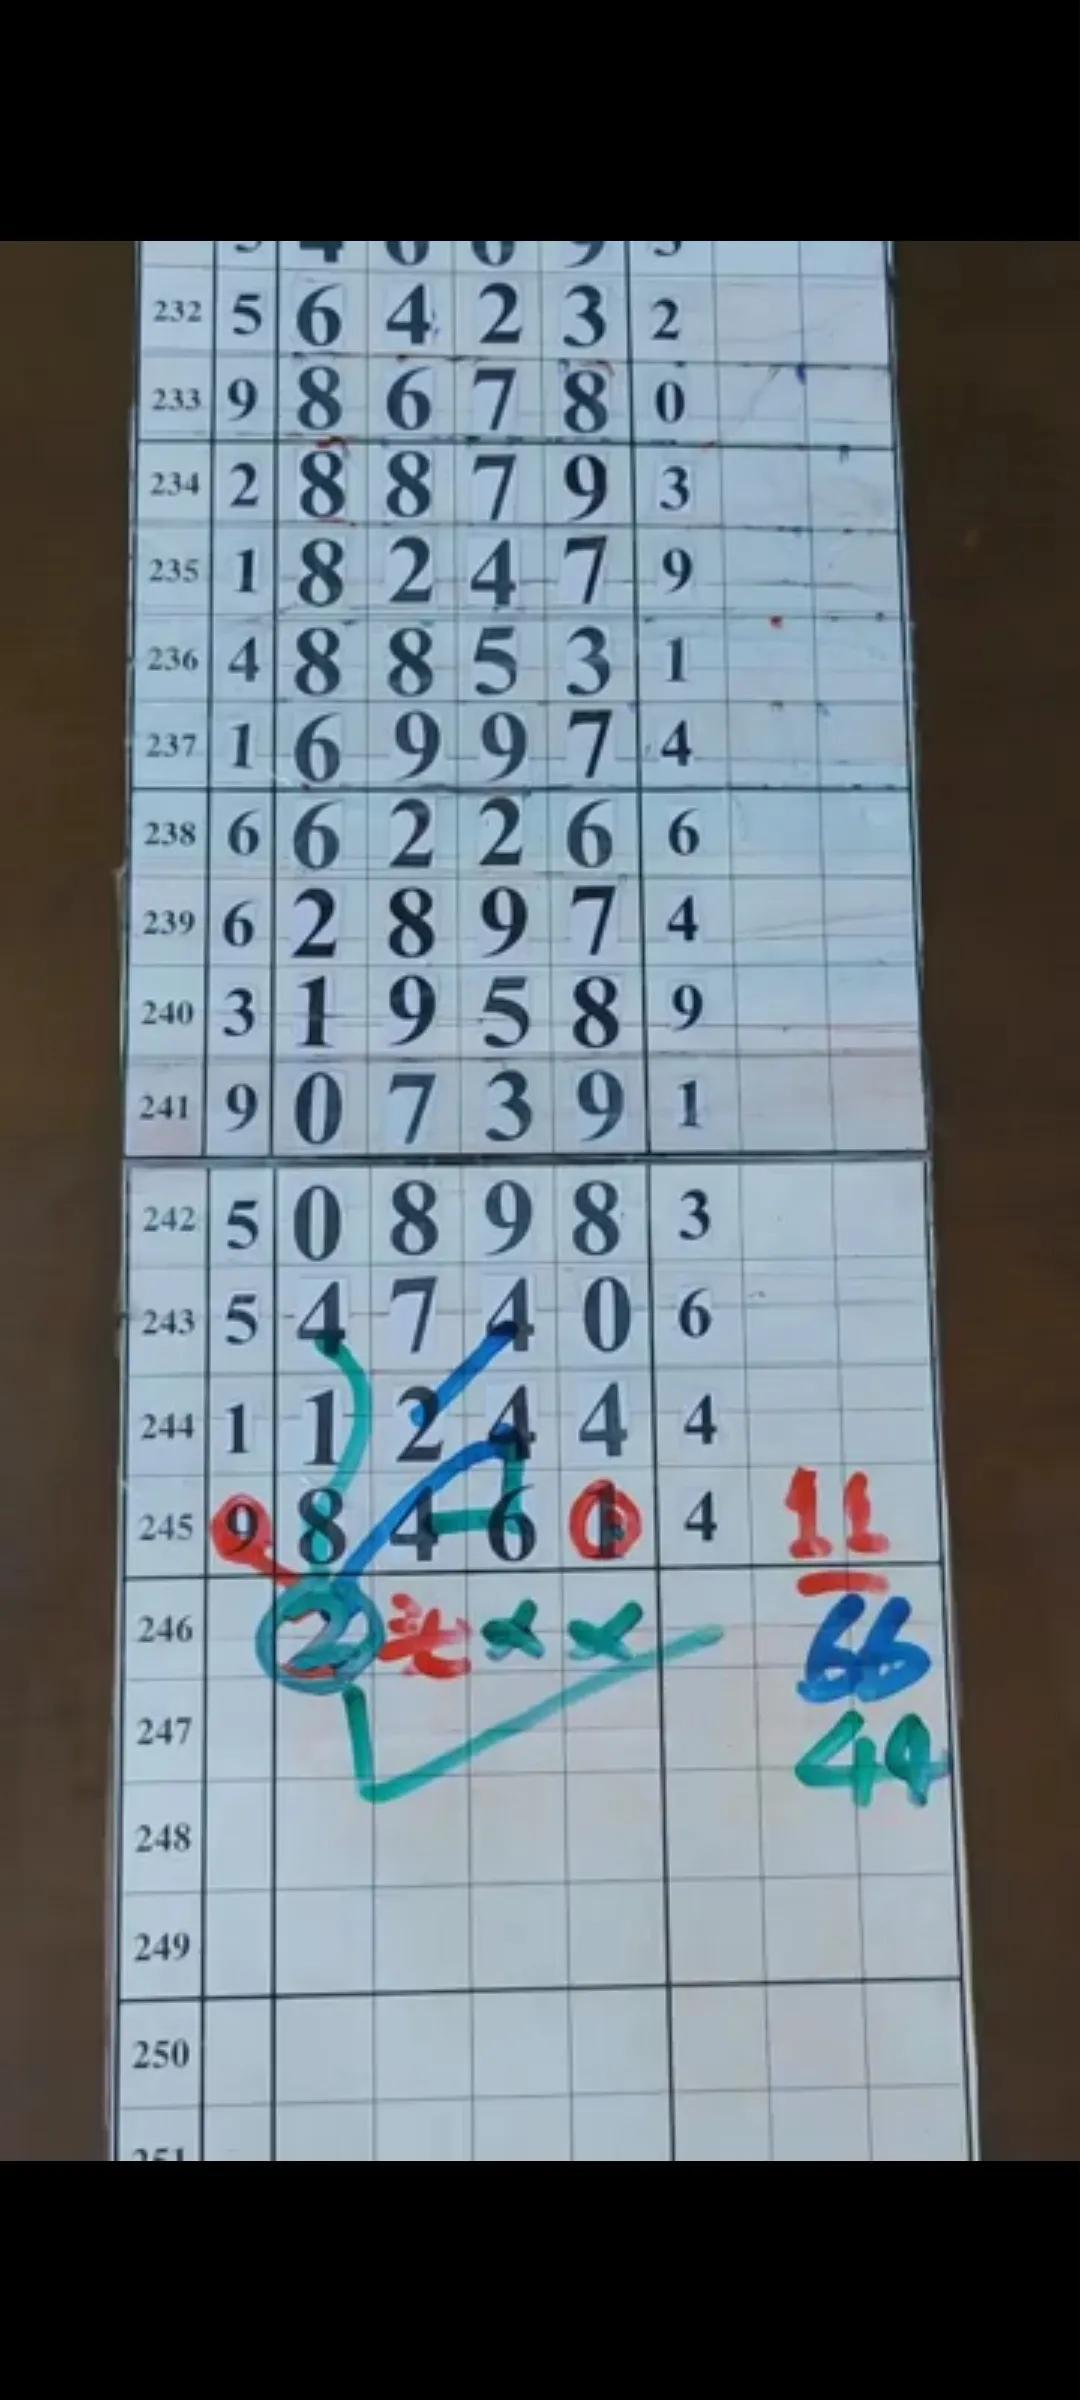 232 5 6 4 2 3 2
233 9 8 6 7 8 0
234 2 8 8 7 9 3
235 1 8 2 4 7 9
236 4 8 8 5 3 1
237 1 6 9 9 7 4
238 6 6 2 2 6 6
239 6 2 8 9 7 4
240 3 1 9 5 8 9
241 9 0 7 3 9 1
242 5 0 8 9 8 3
243 5 4 7 4 0 6
244 1 1 2 4 4 4
245 9 8 4 6 1 4 11
246 2 头 × × 66
247 44
248
249
250